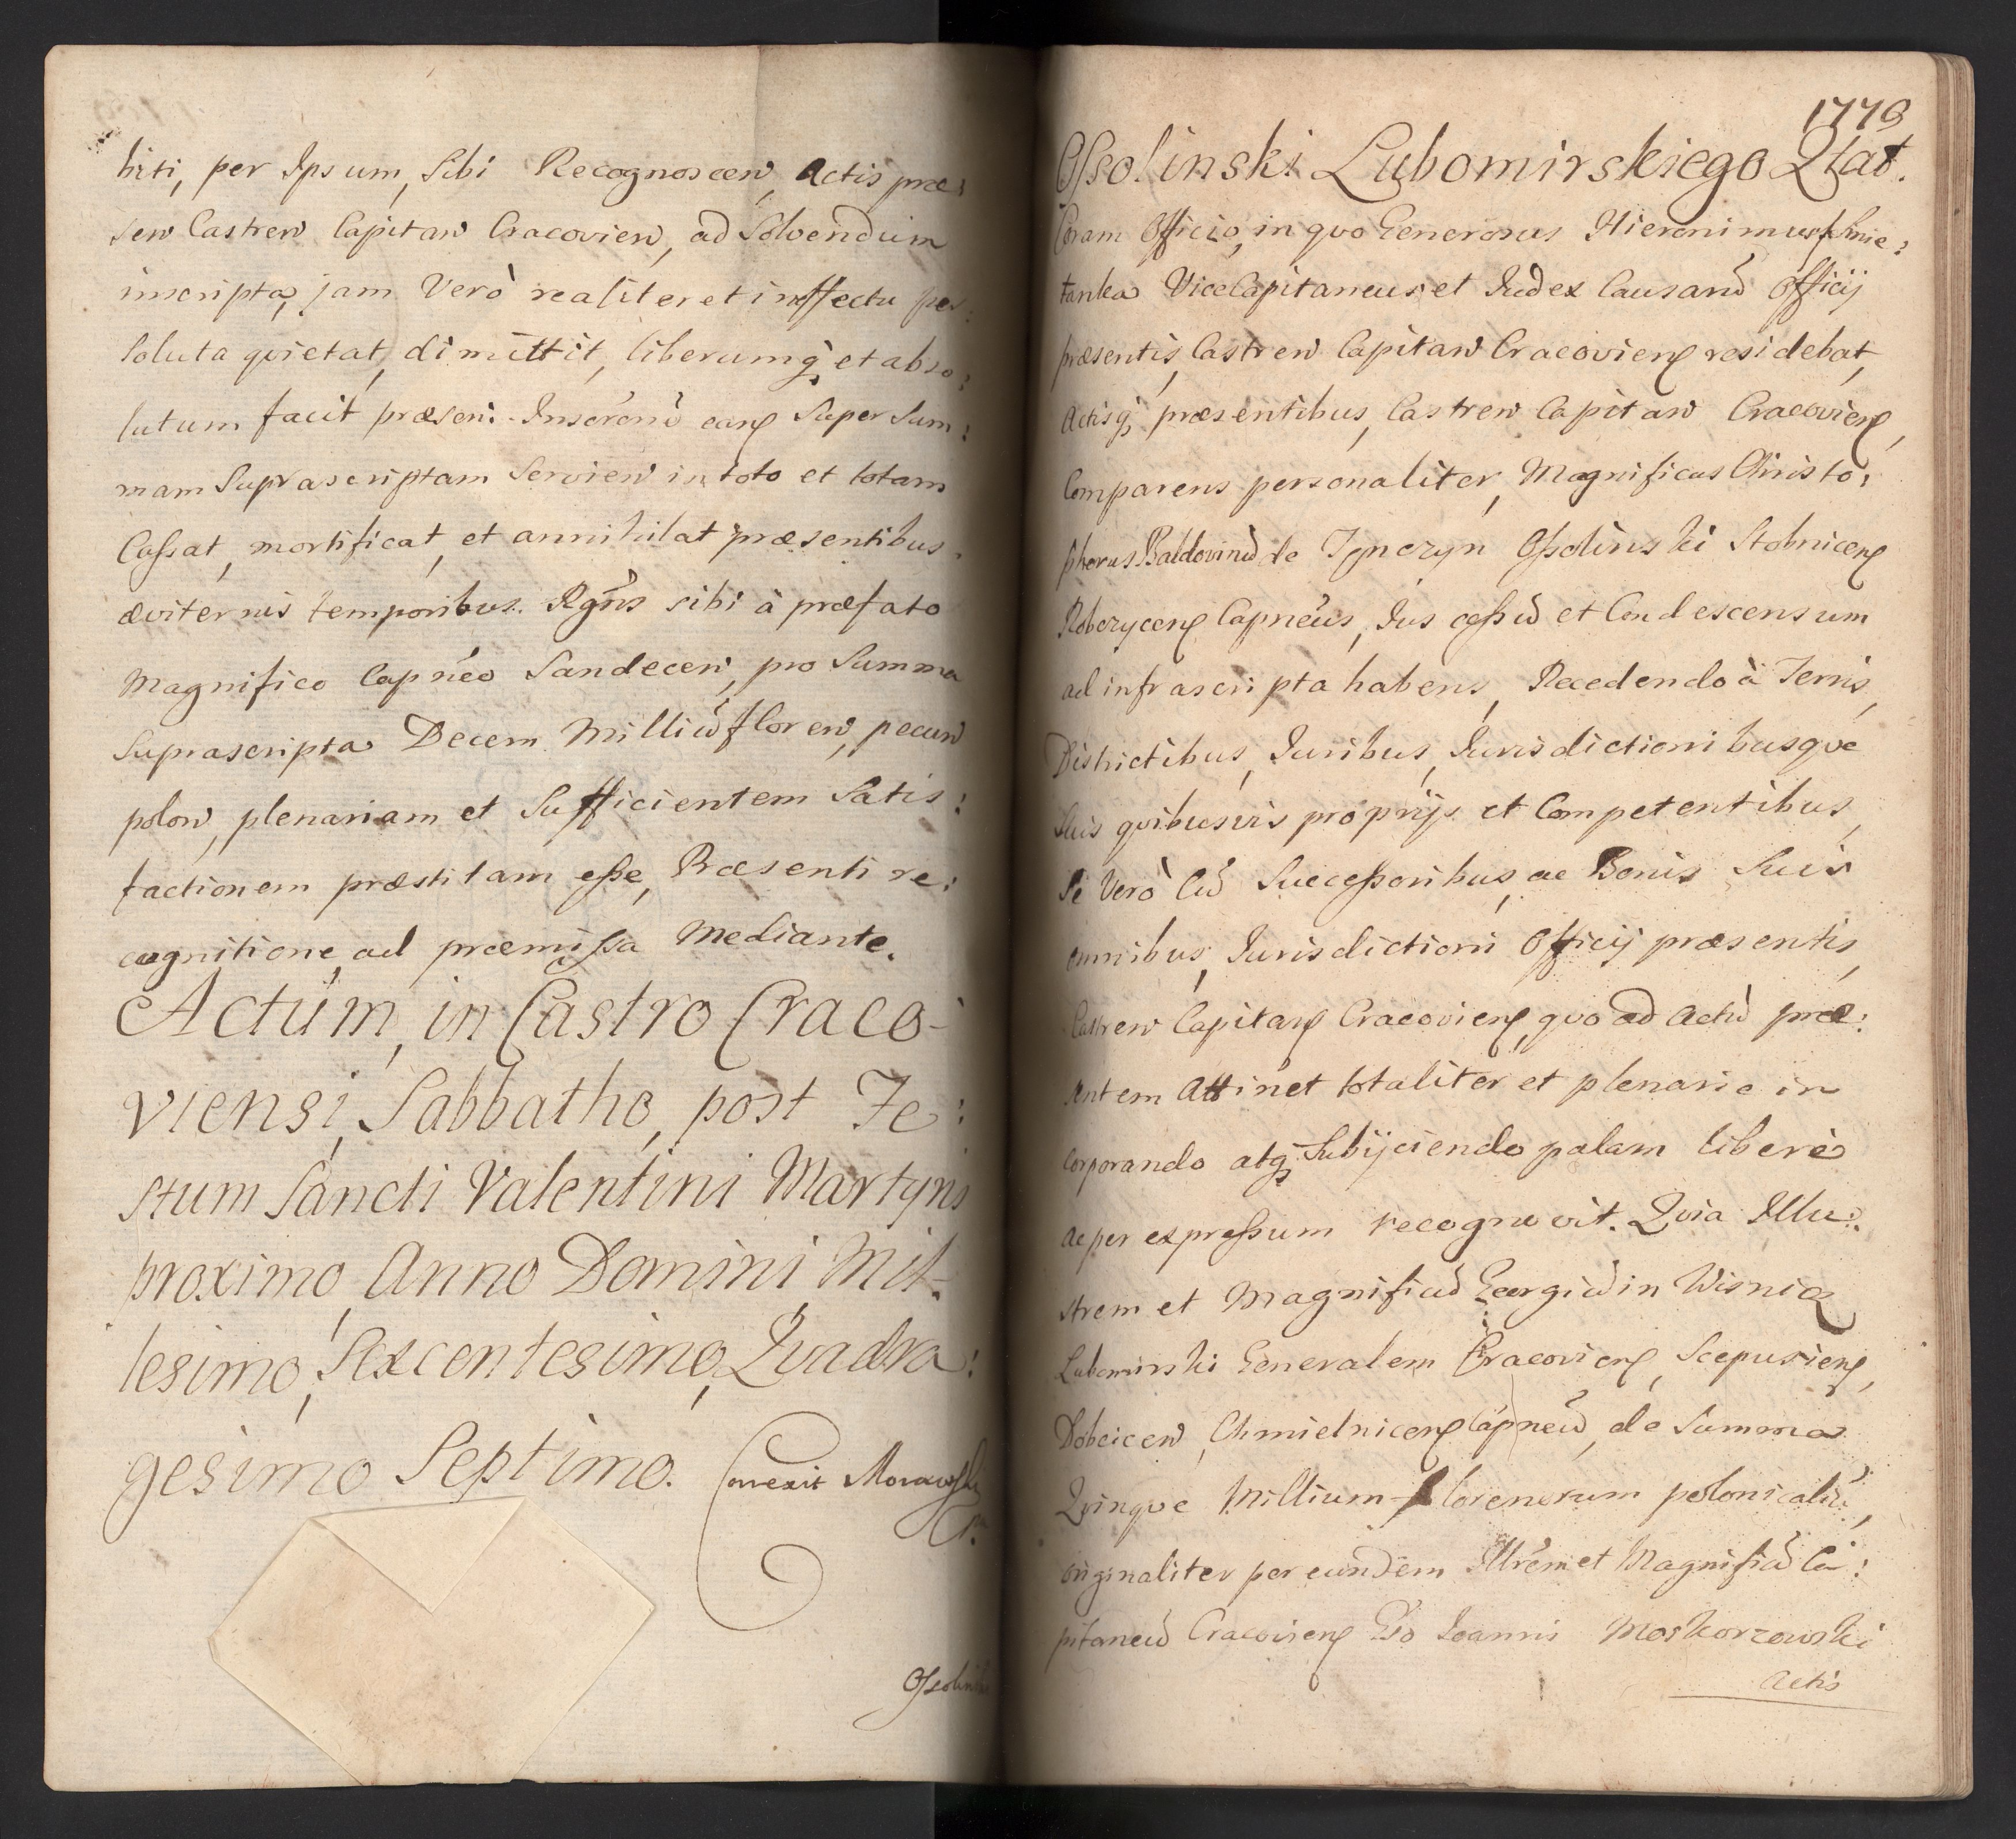 biti, per Ipsum, Sibi Recognoscen, Actis præ:
sen Castren Capitan Cracovien, ad Solvendum
inscripta, jam Verò realiter et in effectu per:
soluta qvietat, dimittit, liberumq́ et abso:
lutum facit præsen: Inscrōnē eanʒ Super Sum:
mam Suprascriptam Servien in toto et totam
Cassat, mortificat, et annihilat præsentibus,
æviternis temporibus. Rgn̄s sibi à præfato
Magnifico Capn̄eo Sandecen, pro Summa
Suprascripta Decem Milliū floren, pecun
polon, plenariam et Sufficientem Satis:
factionem præstitam esse, Præsenti re:
cognitione, ad præmissa Mediante.
Actum, in Castro Craco-
viensi, Sabbatho, post Fe:
stum Sancti Valentini Martyris
proximo, Anno Domini Mil-
lesimo, Sexcentesimo, Qvadra:
gesimo Septimo. Correxit Morawski
Cr.
Ossolinski
1779
Ossolinski Lubomirskiego Qtat.
Coram Officio, in qvo Generosus Hieronimus Smie:
tanka ViceCapitaneus et Iudex Causarū Officij
præsentis, Castren Capitan Cracovienʒ residebat,
Actisq́ præsentibus, Castren Capitan Cracovienʒ,
Comparens personaliter, Magnificus Christo:
phorus Baldovinū de Tęnczyn Ossolinski Stobnicenʒ
Robczycenʒ Capnēus, Ius cessū et Condescensum
ad infrascripta habens, Recedendo à Terris,
Districtibus, Iuribus, Iurisdictionibusqve
Suis qvibusvis proprijs et Competentibus,
Se Verò Cū Successoribus, ac Bonis Suis
omnibus, Iurisdictioni Officij præsentis,
Castren Capitanʒ Cracovienʒ qvo ad Actū præ:
sentem Attinet totaliter et plenarie in
corporando atq́ Subijciendo palam liberè
ac per expressum recognovit. Qvia Illu:
strem et Magnificū Georgiū in Wisnicz
Lubomirski Generalem Cracovienʒ, Scepusienʒ,
Dobcicen, Chmielnicenʒ Capnēū, de Summa
Qvinqve Millium florenorum polonicaliū,
originaliter per eundem Illrēm et Magnificū Ca:
pitaneū Cracovienʒ Gso Ioannis Moskorzowski
Actis